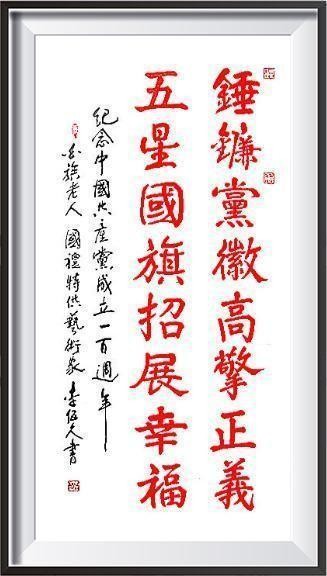 錘鐮黨徽高擎正義
五星國旗招展幸福
紀念中國共產黨成立一百週年
族老人國禮特供藝術家李伍久書